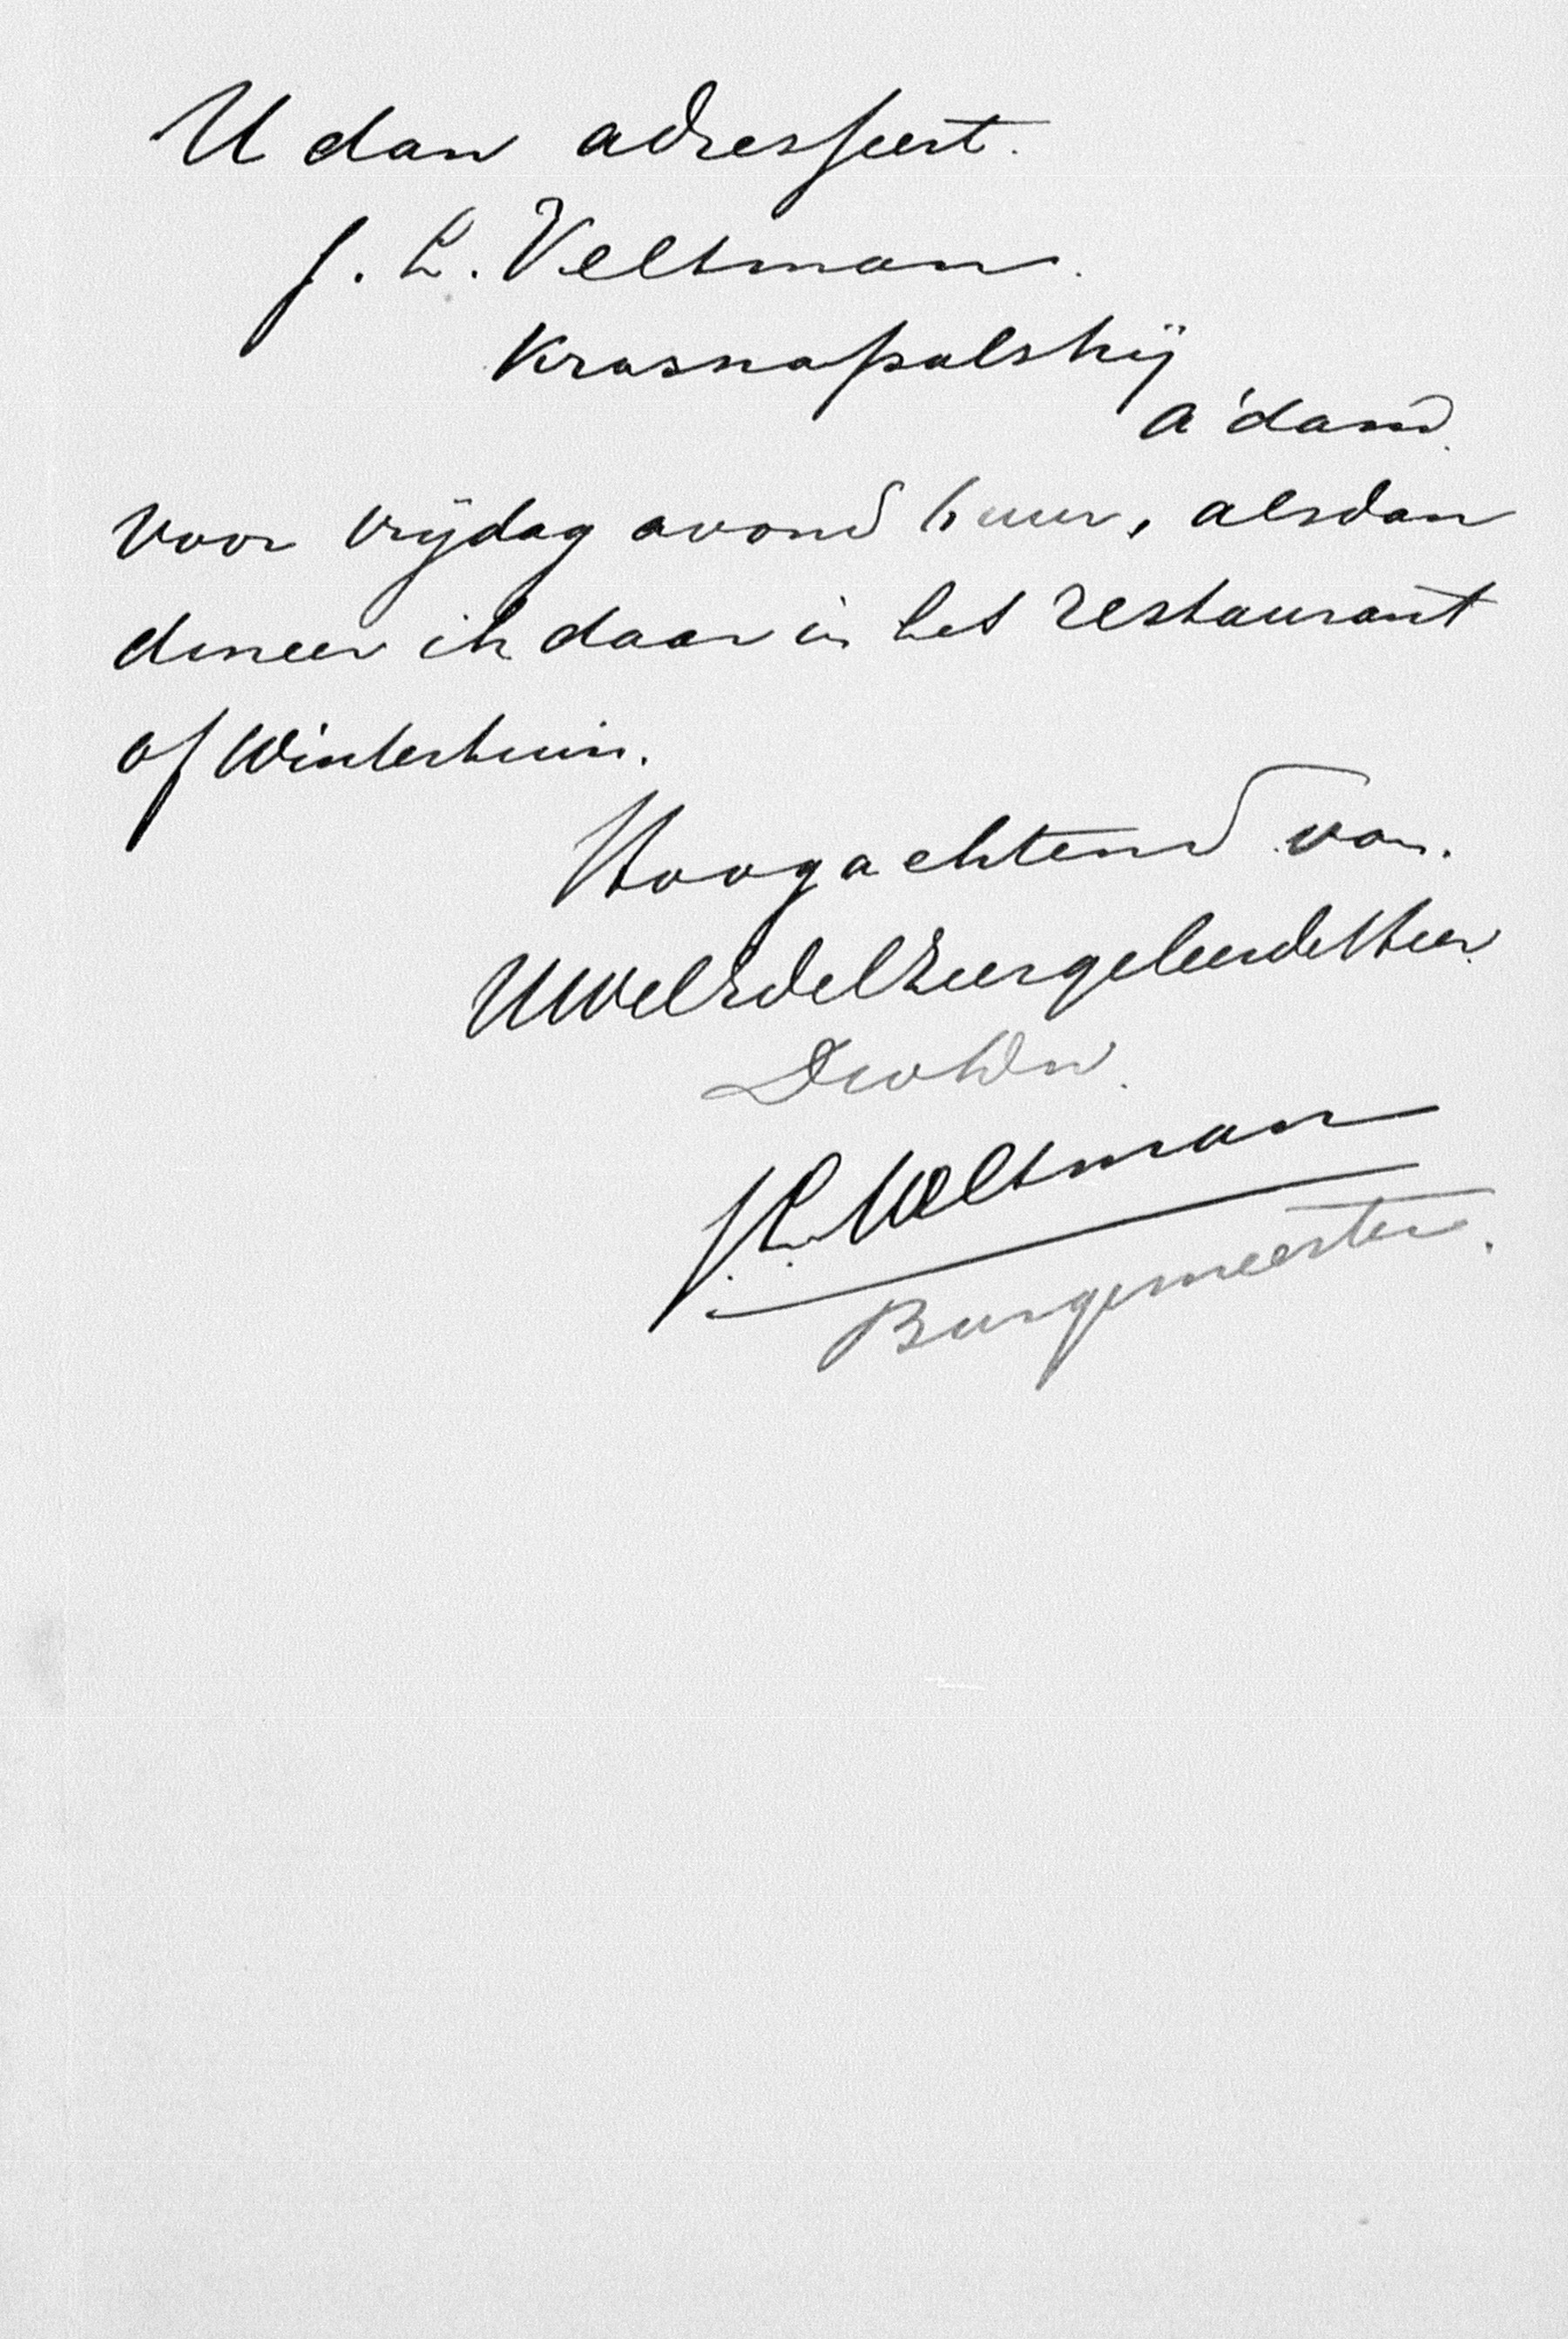 U dan adresseert.
J. L. Veltman.
Krasnapolskij
A'dam.
Voor Vrijdag avond 6 uur, alsdan
dineer ik daar in het restaurant
of Wintertuin.
Hoogachtend van.
UWelEdelZeergeleerdeHeer
Dw Dn
J. L. Veltman
Burgemeester.